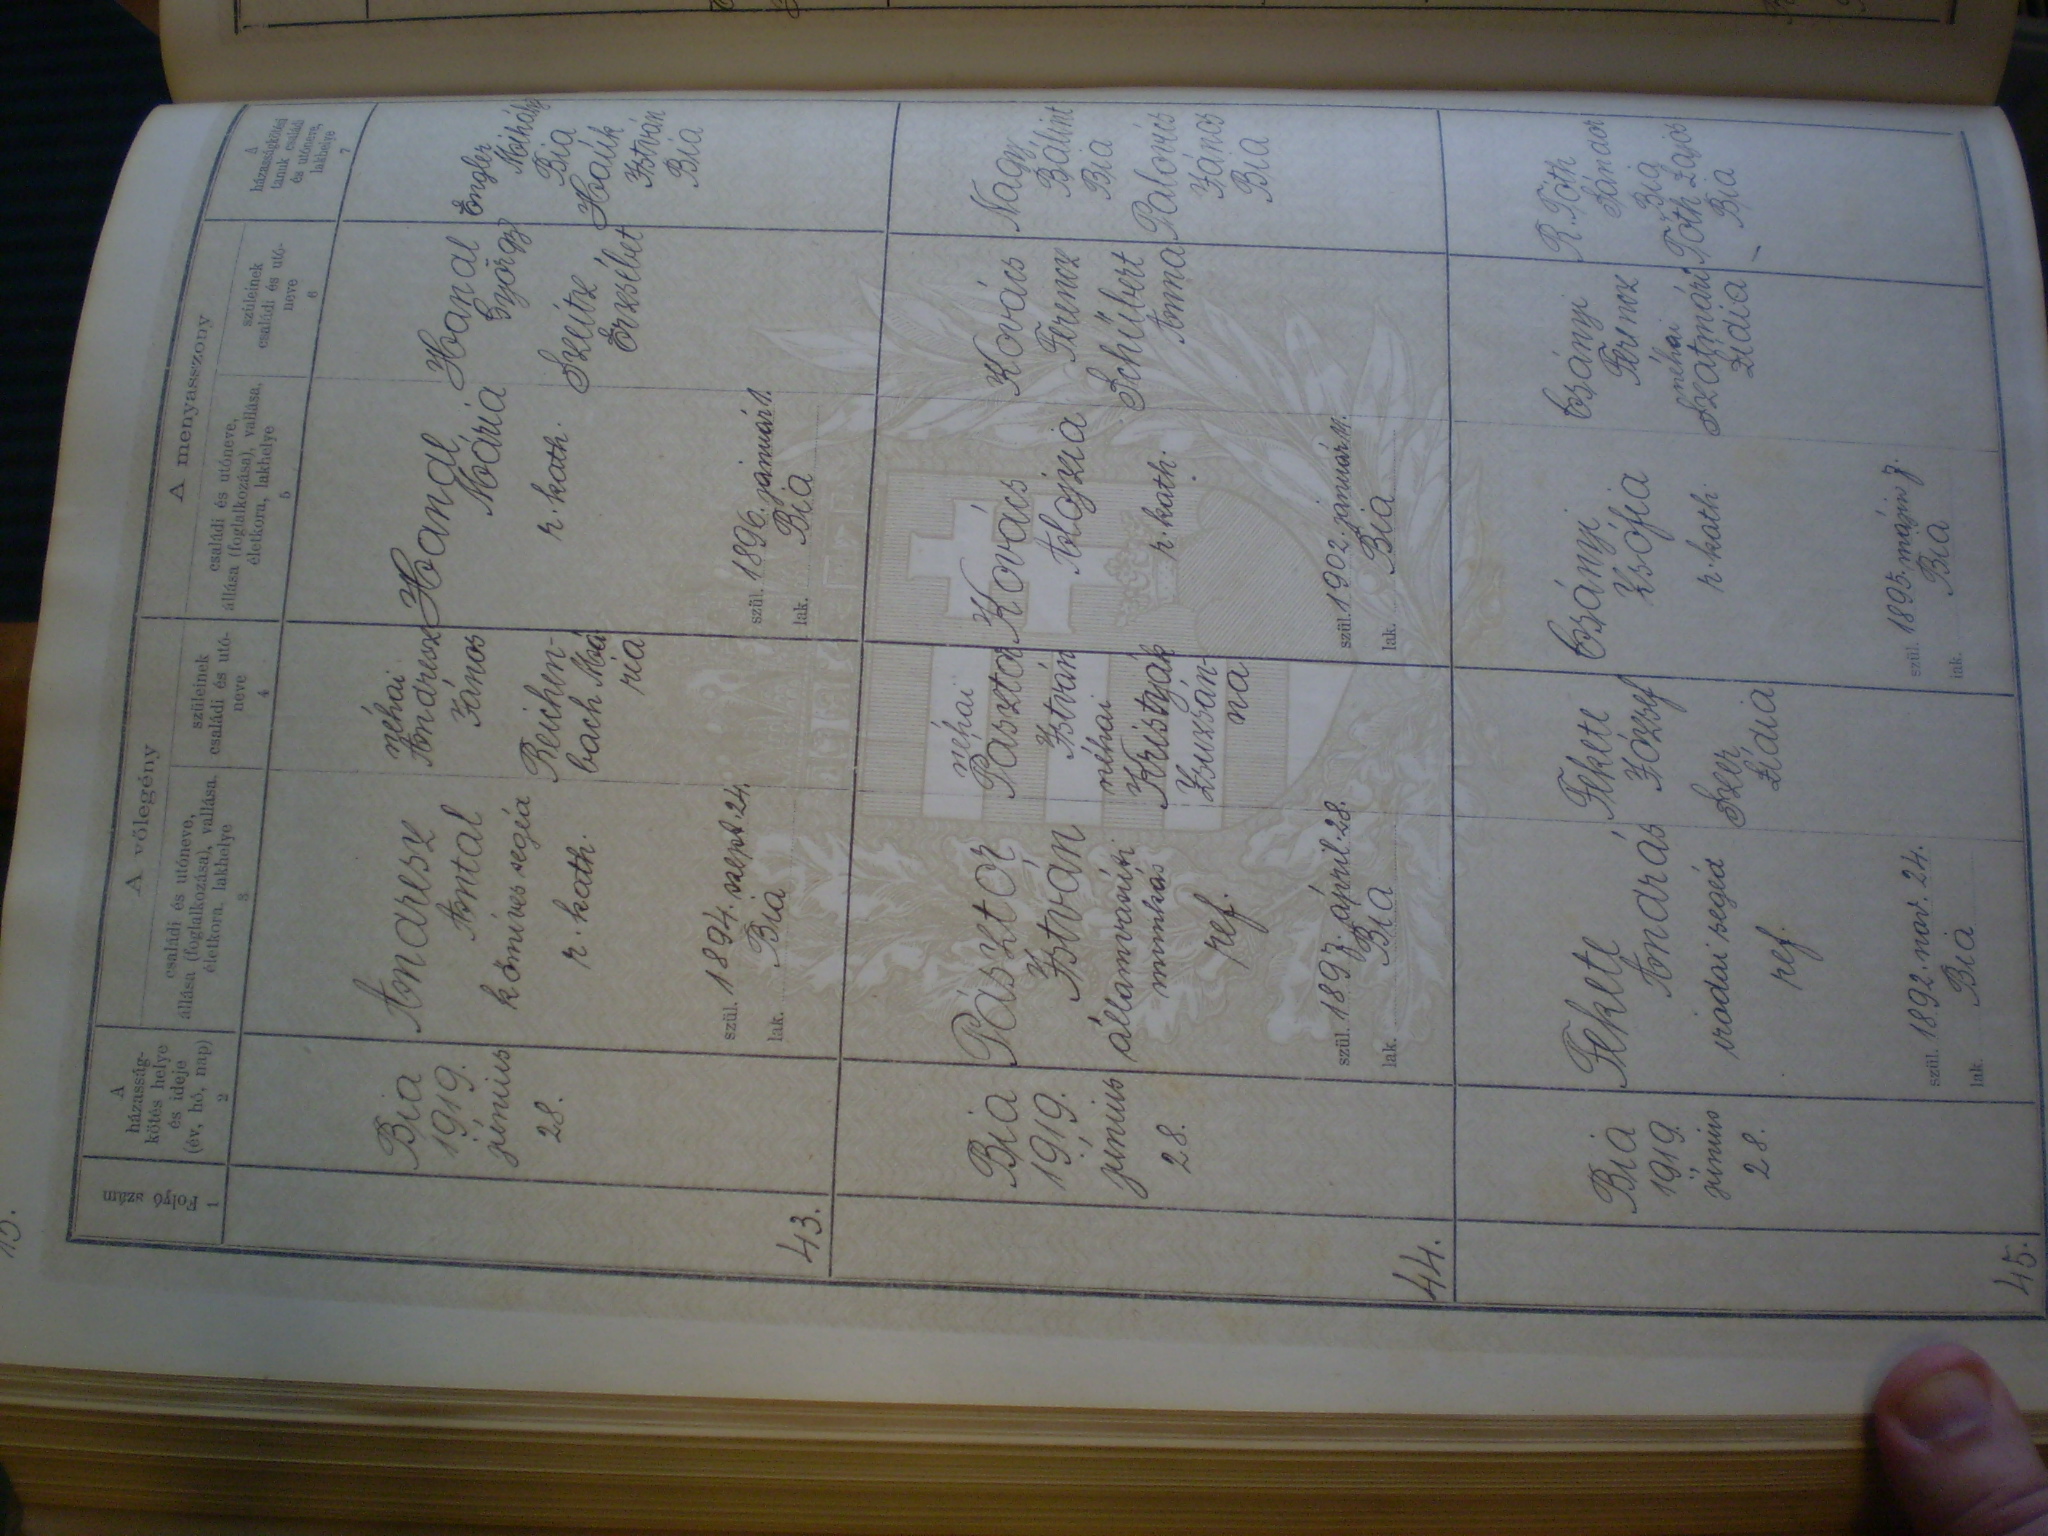 15.
Folyó
szám
1
A
házasság-
kötés helye
és ideje
(év, hó, nap)
2
A vőlegény
családi és utóneve,
állása (foglalkozása), vallása,
életkora, lakhelye
3
szüleinek
családi és utó-
neve
4
A menyasszony
családi és utóneve,
állása (foglalkozása), vallása,
életkora, lakhelye
5
szüleinek
családi és utó-
neve
6
A
házasságkötési
tanuk családi
és utóneve,
lakhelye
7
43.
Bia
1919.
június
28.
Andresz
Antal
kőmives segéd
r. kath.
szül. 1894. szept. 24.
lak. Bia
néhai
Andresz
János
Reichen-
bach Má
ria
Handl
Mária
r. kath.
szül. 1896. január 1.
lak. Bia
Handl
György
Szeitz
Erzsébet
Engler
Mihály
Bia
István
Bia
44.
Bia
1919.
június
28.
Pásztor
István
államvasúti
munkás
ref.
szül. 1897. április 28.
lak. Bia
néhai
Pásztor
István
néhai
Kristyák
Zsuzsán-
na
Kovács
Alojzia
r. kath.
szül. 1902. január 11.
lak. Bia
Kovács
Ferencz
Schübert
Anna
Nagy
Bálint
Bia
Palovics
János
Bia
45.
Bia
1919.
június
28.
Fekete
András
irodai segéd
ref.
szül. 1892. nov. 24.
lak. Bia
Fekete
József
Szer
Lidia
Csányi
Zsófia
r. kath.
szül. 1895. május 7.
lak. Bia
Csányi
Ferencz
néhai
Szatmári
Lidia
R. Tóth
Sándor
Bia
Tóth Lajos
Bia